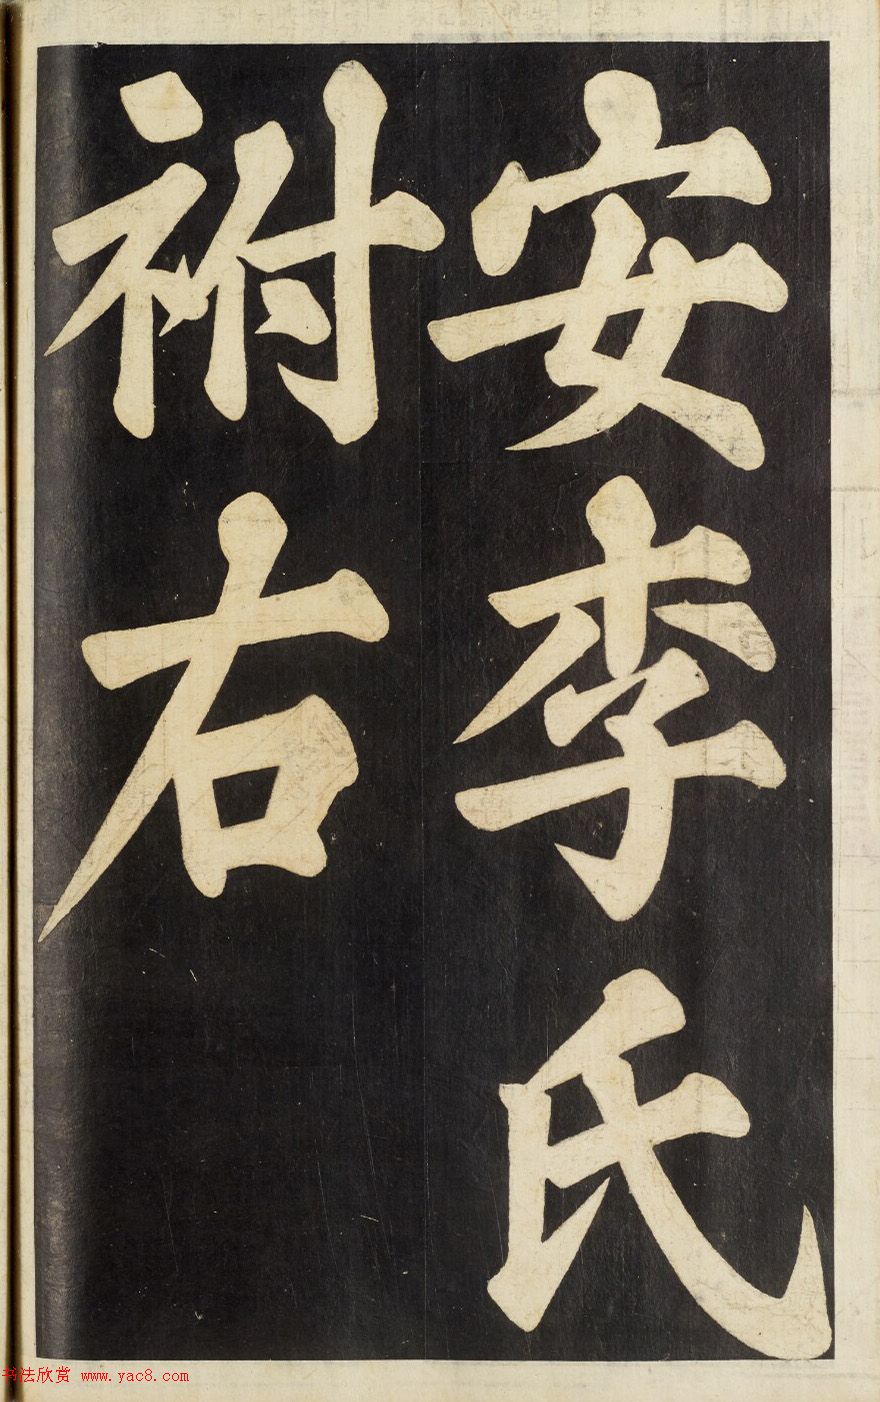 安李氏
祔右
书法欣赏 www.yac8.com